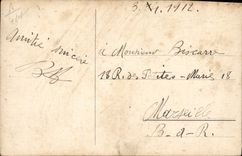 3. XI. 1912.
Amitié sincère
à Monsieur Biscarre
18 R. des Petites-Maries 18
Marseille
B-d-R.